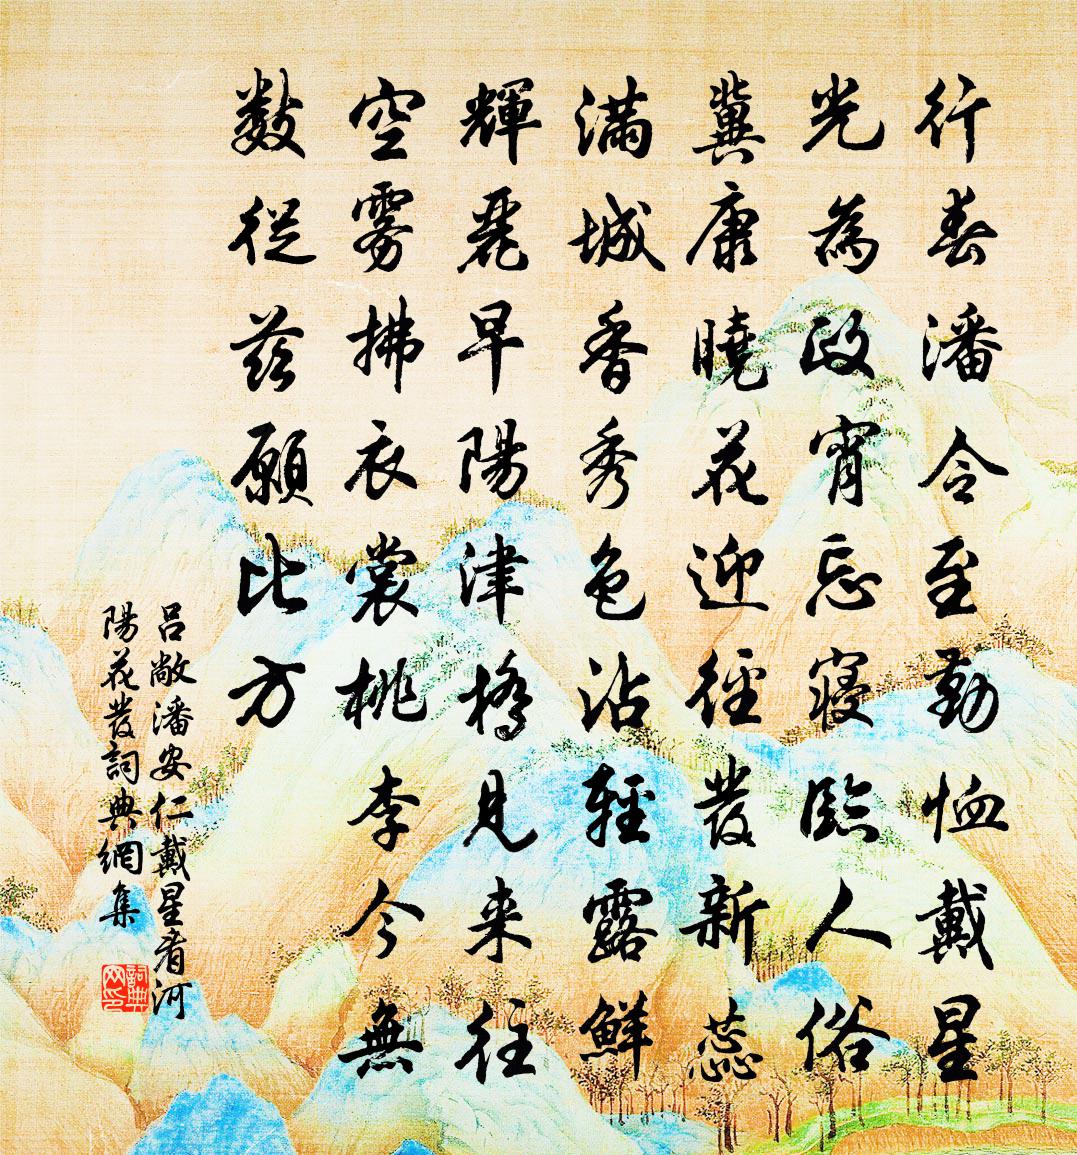 行春潘令至勤恤戴星
光為政宵忘寢臨人俗
冀康曉花迎徑發新蕊
滿城香秀色沾輕露鮮
輝麗早陽津橋見来往
空雾拂衣裳桃李今無
數從茲願比方
吕敞潘安仁戴星看河
陽花發詞典網集
詞典
网印